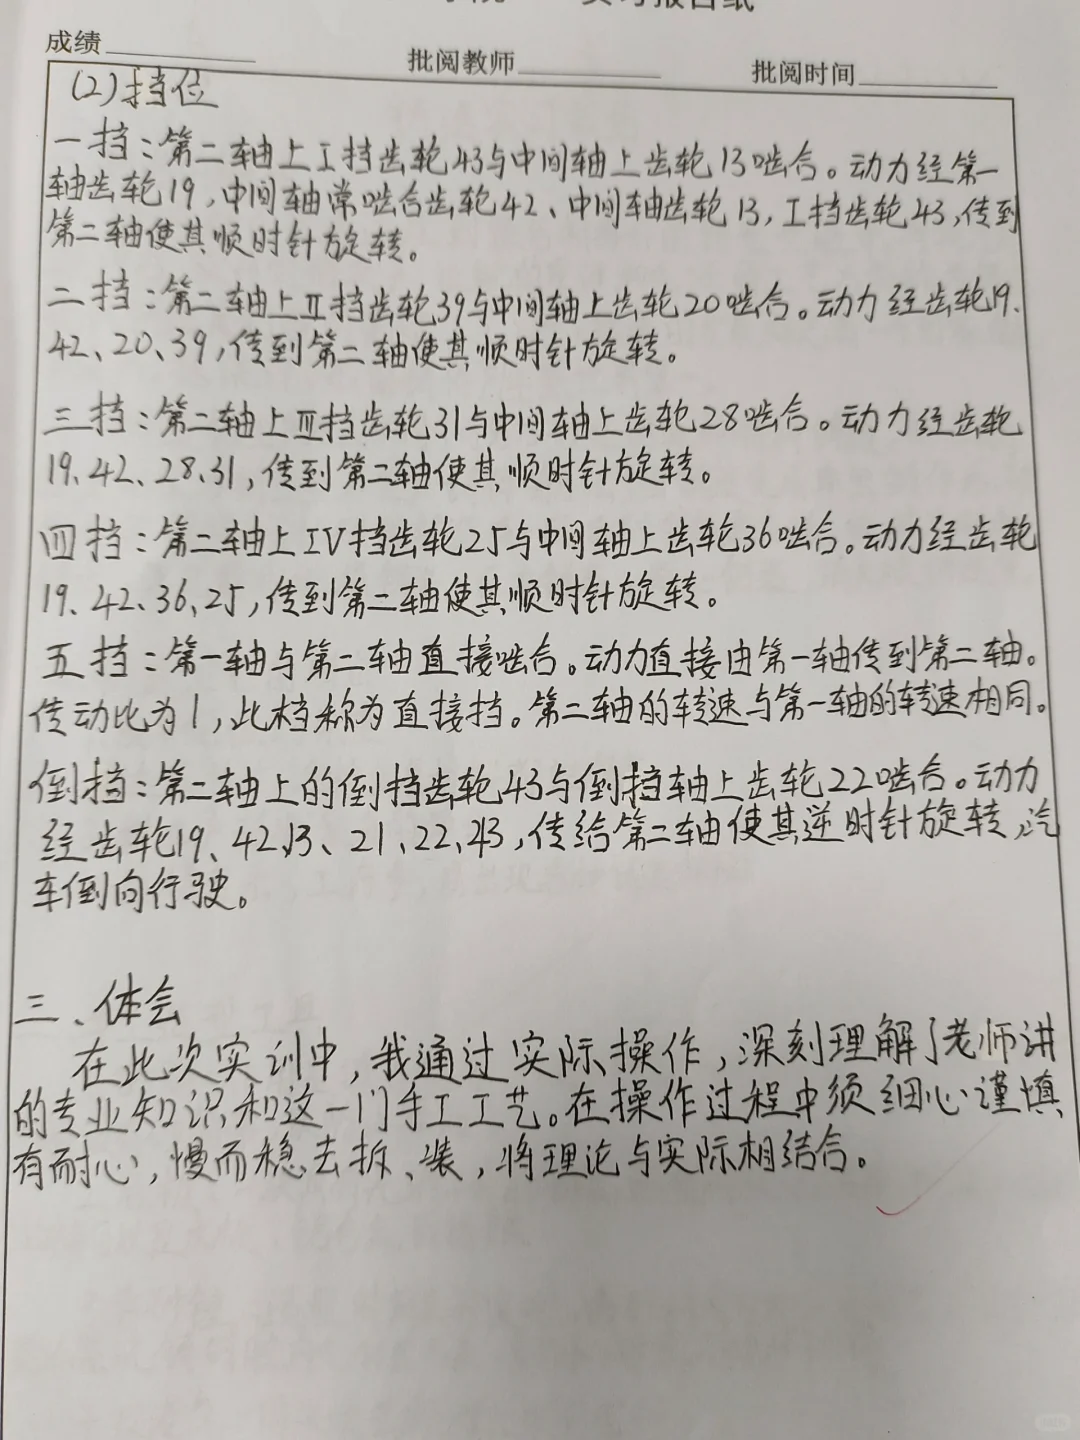 成绩
批阅教师
批阅时间
(2)挡位
一挡：第二轴上I挡齿轮43与中间轴上齿轮13啮合。动力经第一
轴齿轮19，中间轴常啮合齿轮42、中间轴齿轮13，I挡齿轮43，传到
第二轴使其顺时针旋转。
二挡：第二轴上II挡齿轮39与中间轴上齿轮20啮合。动力经齿轮19.
42、20、39，传到第二轴使其顺时针旋转。
三挡：第二轴上III挡齿轮31与中间轴上齿轮28啮合。动力经齿轮
19、42、28、31，传到第二轴使其顺时针旋转。
四挡：第二轴上IV挡齿轮25与中间轴上齿轮36啮合。动力经齿轮
19、42、36、25，传到第二轴使其顺时针旋转。
五挡：第一轴与第二轴直接啮合。动力直接由第一轴传到第二轴。
传动比为1，此档称为直接挡。第二轴的转速与第一轴的转速相同。
倒挡：第二轴上的倒挡齿轮43与倒挡轴上齿轮22啮合。动力
经齿轮19、42、13、21、22、43，传给第二轴使其逆时针旋转，汽
车倒向行驶。
三、体会
在此次实训中，我通过实际操作，深刻理解了老师讲
的专业知识和这一门手工工艺。在操作过程中须细心谨慎
有耐心，慢而稳去拆、装，将理论与实际相结合。